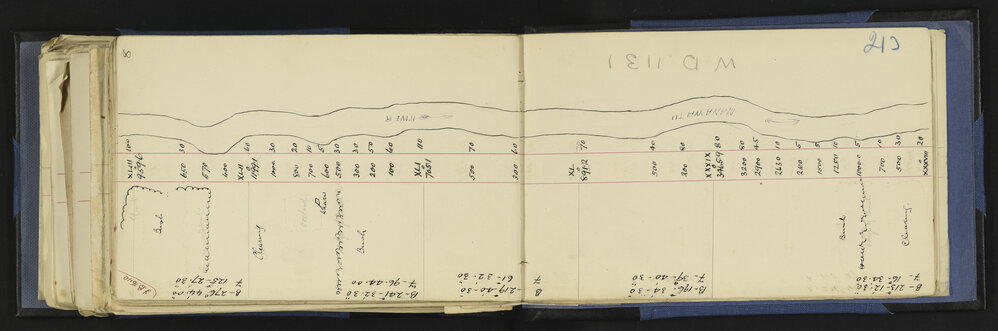 8
213
W D 1131
RIVER
MANAWATU
XLIII 100
9596
650 30
670
400
XLII 60
11991
1000 30
800 20
700 10
600 5
500 30
300 30
200 50
100 60
XLI 110
7051
500 70
300 60
XL 70
8912
500 40
200 60
XXXIX 80
39659
3200 80
2900 45
2630 10
200 5
1500 5
1250 10
1000 5
700 10
500 30
XXXVIII 20
Bush
Clearing
Bush
Bush
Clearing
B-276°-44-00
7- 125-27-30
B-241-32-30
7- 96-44-00
B-219-40-30
7 61-32-30
B-196-34-30
7-39-40-30
B-213-12-30
7- 16-34-30